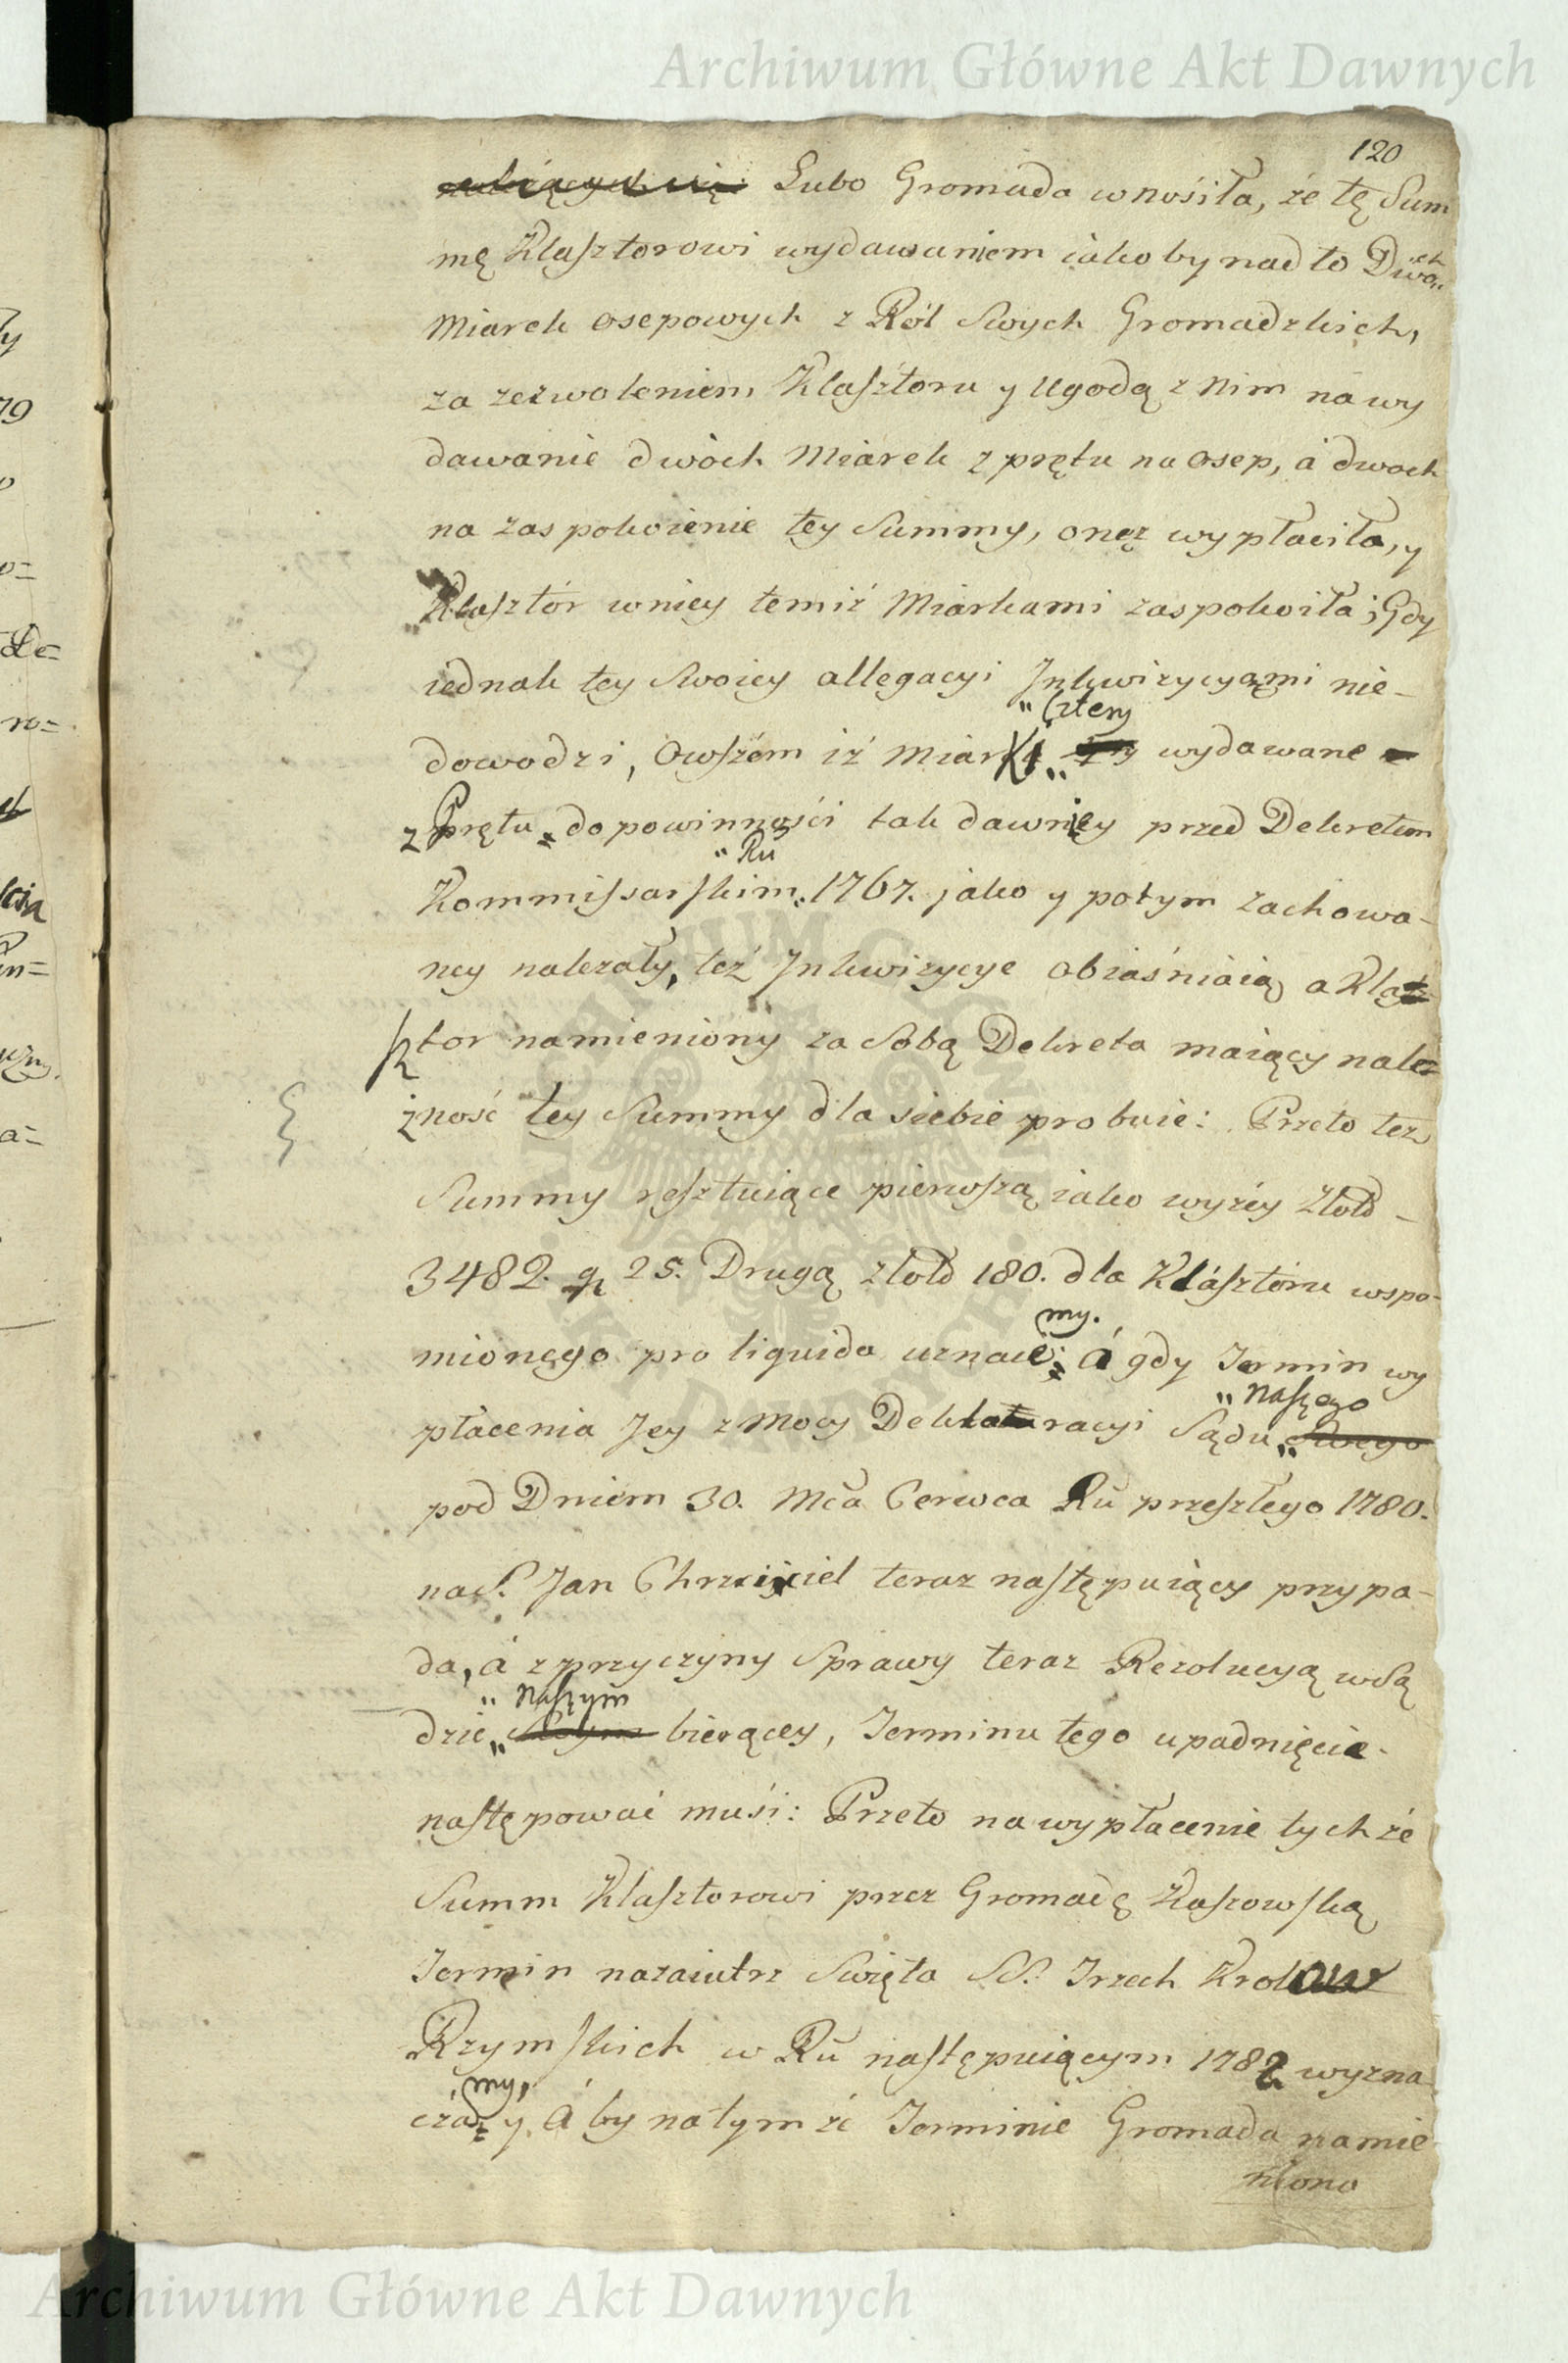 Archiwum Główne Akt Dawnych
120
Lubo Gromada wnośiła, że tę Sum
mę Klasztorowi wydawaniem iakoby nad to Dwóch
Miarek osepowych z Ról Swych Gromadzkich,
za zezwoleniem Klasztoru y Ugodą z Nim na wy
dawanie dwóch Miarek z prętu na Osep, á dwoch
na zaspokoienie tey Summy, onęż wypłaciła, y
Klasztór w niey temiż Miarkami zaspokoiła; Gdy
iednak tey Swoiey allegacyi Inkwizycyami nie-
„ Cztery
dowodzi, Owszem iż Miarki „ wydawane
z Prętu do powinnośći tak dawniey przed Dekretem
„ Ru
Kommissarskim „ 1767. jako y potym zachowa-
ney należały, też Inkwizycye obiaśniaią a Kla
sztor namieniony za Sobą Dekreta maiący nale
żność tey Summy dla siebie probuie: Przeto też
Summy resztuiące pierwszą iako wyżey Złotd
3482. gr 25. Drugą złotd 180. dla Klásztoru wspo-
my.
mionego pro liquido uznaie: á gdy Termin wy
„ Naszego
płacenia Jey z Mocy Deklaracyi Sądu „ Swego
pod Dniem 30. Mca Cerwca Ru przeszłego 1780.
na S. Jan Chrzciciel teraz następuiący przypa-
da, á z przyczyny Sprawy teraz Rezolucyą w Są
„ Naszym
dzie „ Swym bierącey, Terminu tego upadnięcie
następować muśi: Przeto na wypłacenie tychże
Summ Klasztorowi przez Gromadę Kaszowską
Termin nazaiutrz Swięta SS. Trzech Krolow
Rzymskich w Ru następuiącym 1782 wyzna
my,
cza y, Aby na tymże Terminie Gromada namie
niona
Archiwum Główne Akt Dawnych